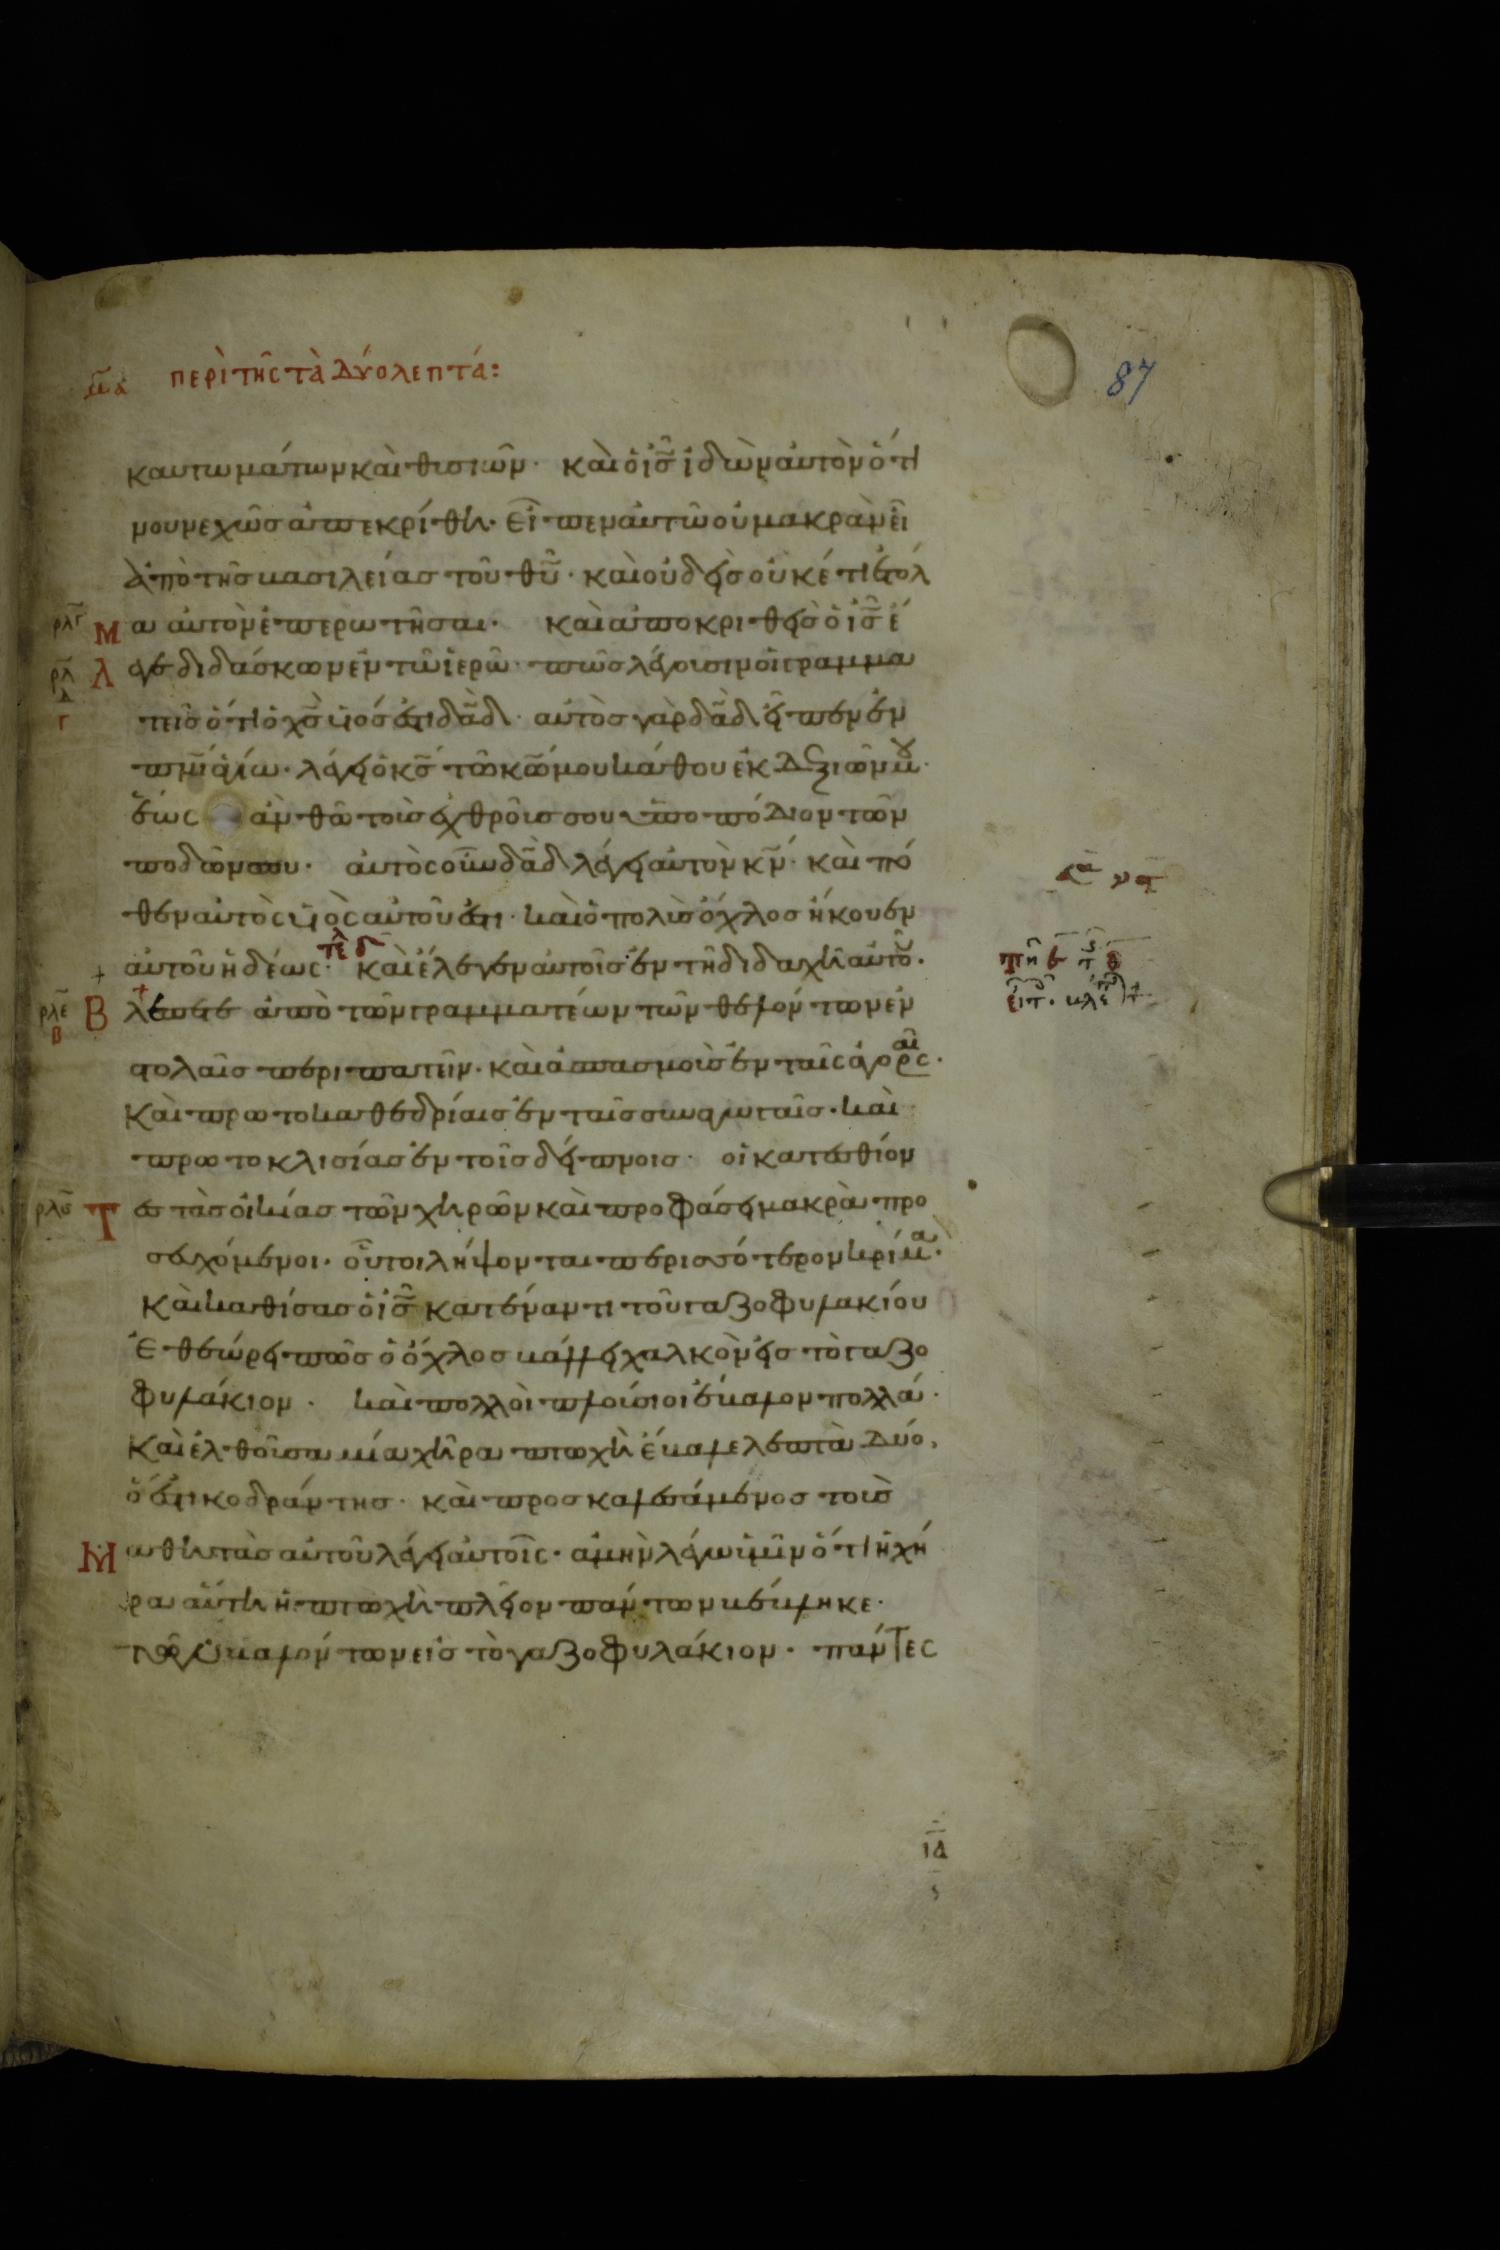 μα περὶ τῆς τὰ δύο λεπτά:
87
καυτωμάτων καὶ θυσιῶν· καὶ ὁ ις ἰδὼν αὐτὸν ὅτι
νουνεχῶς ἀπεκρίθη· εἶπεν αὐτῶ οὐ μακρὰν εἶ
ἀπὸ τῆς βασιλείας τοῦ θυ· καὶ οὐδεὶς οὐκέτι ἐτόλ
ρλγ μα αὐτὸν ἐπερωτῆσαι· καὶ ἀποκριθεὶς ὁ ις ἔ
ρλδ λεγε διδάσκων ἐν τῶ ἱερῶ· πῶς λέγουσιν οἱ γραμμα
τεῖς ὅτι ὁ χς υἱός ἐστι δαδ· αὐτὸς γὰρ δαδ εἶπεν ἐν
πνι ἁγίω· λέγει ὁ κς τῶ κω μου κάθου ἐκ δεξιῶν μου·
ἕως ἂν θῶ τοὺς ἐχθρούς σου ὑποπόδιον τῶν
ποδῶν σου· αὐτὸς οὖν δαδ λέγει αὐτὸν κν· καὶ πό
θεν αὐτὸς υἱὸς αὐτοῦ ἐστι· καὶ ὁ πολὺς ὄχλος ἤκουεν
αὐτοῦ ἡδέως· καὶ ἔλεγεν αὐτοῖς ἐν τῆ διδαχῆ αὐτοῦ·
ρλε βλέπετε ἀπὸ τῶν γραμματέων τῶν θελόντων ἐν
στολαῖς περιπατεῖν· καὶ ἀσπασμοὺς ἐν ταῖς ἀγοραῖς·
καὶ πρωτοκαθεδρίαις ἐν ταῖς συναγωγαῖς· καὶ
πρωτοκλισίας ἐν τοῖς δείπνοις· οἱ κατεσθίον
ρλς τες τὰς οἰκίας τῶν χηρῶν καὶ προφάσει μακρὰ προ
σευχόμενοι· οὗτοι λήψονται περισσότερον κρίμα·
καὶ καθίσας ὁ ις κατέναντι τοῦ γαζοφυλακίου
ἐθεώρει πῶς ὁ ὄχλος βάλλει χαλκὸν εἰς τὸ γαζο
φυλάκιον· καὶ πολλοὶ πλούσιοι ἔβαλον πολλά·
καὶ ἐλθοῦσα μία χήρα πτωχὴ ἔβαλε λεπτὰ δύο,
ὅ ἐστι κοδράντης· καὶ προσκαλεσάμενος τοὺς
μαθητὰς αὐτοῦ λέγει αὐτοῖς· ἀμὴν λέγω ὑμῖν ὅτι ἡ χή
ρα αὕτη ἡ πτωχὴ πλεῖον πάντων βέβληκε·
τῶν βαλόντων εἰς τὸ γαζοφυλάκιον· πάντες
ιδ